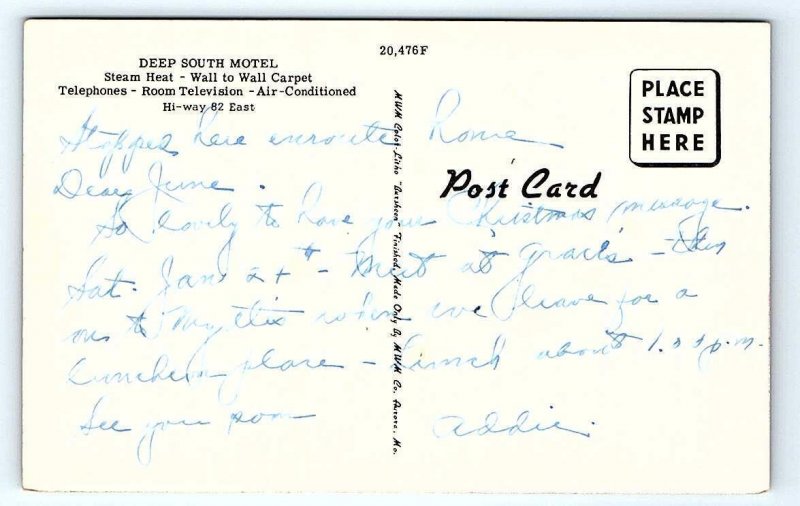 20,476F
DEEP SOUTH MOTEL
Steam Heat - Wall to Wall Carpet
Telephones - Room Television - Air-Conditioned
Hi-way 82 East
PLACE
STAMP
HERE
Post Card
MWM Color-Litho "Burcheen" Finished, Made Only By MWM Co. Aurora, Mo.
Stopped here enroute Rome
Dear June.
So lovely to have your Christmas message.
Sat. Jan - Meet at Grace's - then
on to when we leave for a
luncheon place - Lunch about 1.  p.m.
See you soon Addie.